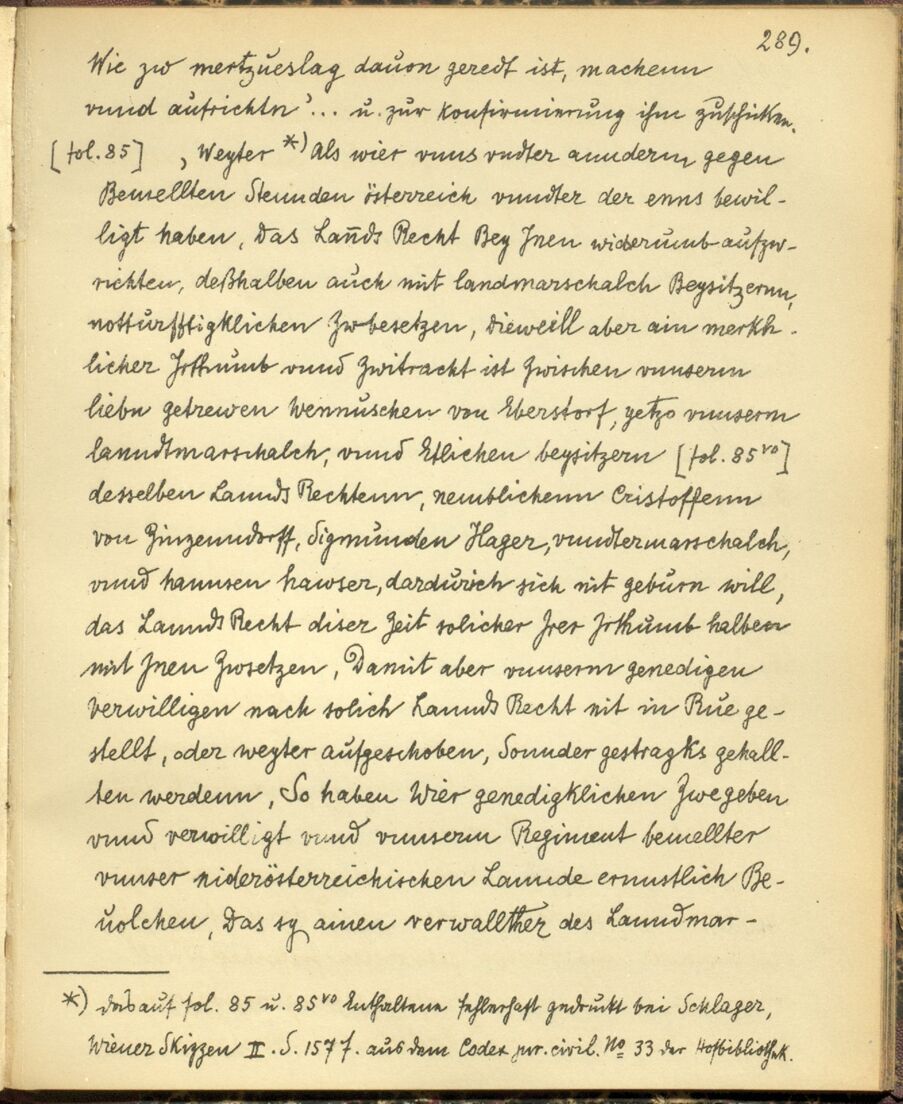 289.
Wie zw mertzueslag dauon geredt ist, machenn
vnnd aufrichtn'... u. zur Konfirmierung ihm zuschicken.
[fol. 85] ‚Weyter *) Als wier vnns vndter annderm gegen
Bemellten Stennden österreich vnndter der enns bewil-
ligt haben, Das Lañds Recht Bey Jnen widerumb aufzw-
richten, deßhalben auch mit landmarschalch Beysitzernn,
notturfftigklichen Zwbesetzen, Dieweill aber ain merkh-
licher Jrthumb vnnd Zwitracht ist Zwischen vnnserm
liebn getrewen Wennuschen von Eberstorf, yetzo vnnserm
lanndtmarschalch, vnnd Etlichen beysitzern [fol. 85vo]
desselben Lannds Rechtenn, nemblichenn Cristoffenn
von Zinzenndorff, Sigmunden Hager, vnndtermarschalch,
vnnd hannsen hawser, dardurch sich nit geburn will,
das Lannds Recht diser Zeit solicher Jrer Jrthumb halben
mit Jnen Zwsetzen, Damit aber vnnserm genedigen
verwilligen nach solich Lannds Recht nit in Rue ge-
stellt, oder weyter aufgeschoben, Sonnder gestragks gehall-
ten werdenn, So haben Wier genedigklichen Zwegeben
vnnd verwilligt vnnd vnnserm Regiment bemellter
vnnser niderösterreichischen Lannde ernnstlich Be-
uolchen, Das sy ainen verwallther des Lanndmar-
*) das auf fol. 85 u. 85vo Enthaltene fehlerhaft gedruckt bei Schlager,
Wiener Skizzen II. S. 157 f. aus dem Codex jur. civil. No 33 der Hofbibliothek.